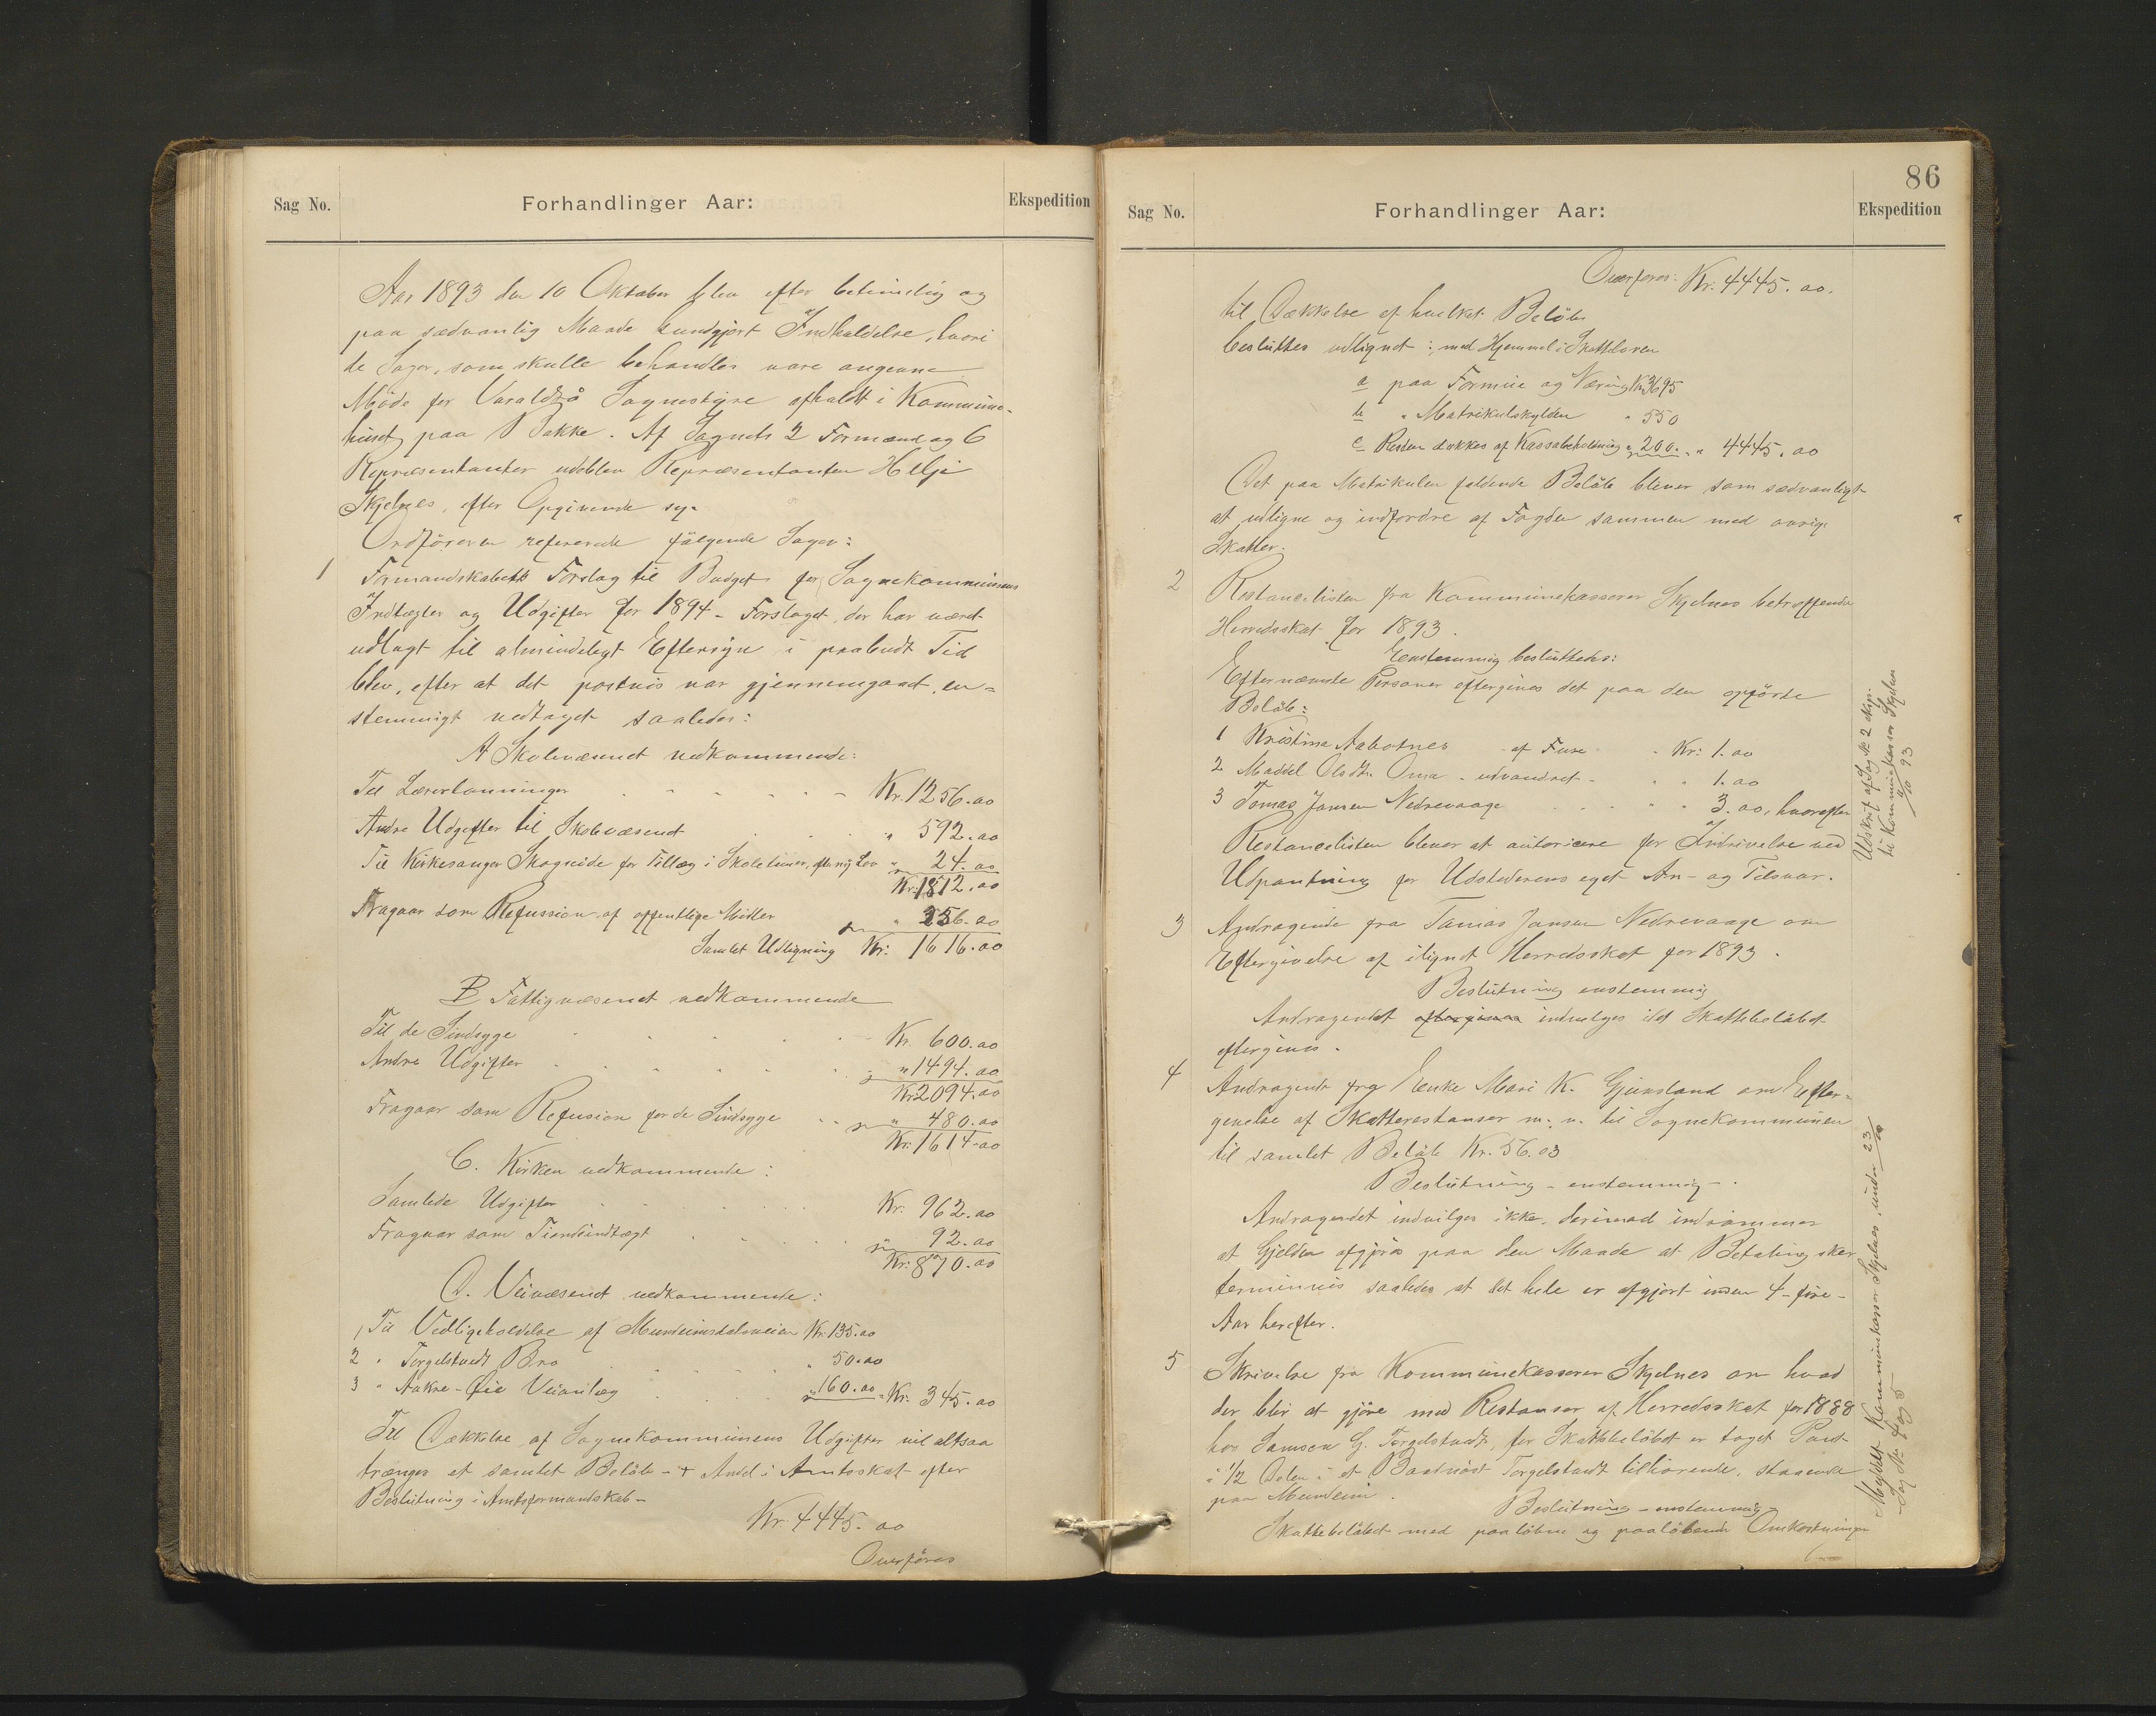 Sag No.
Forhandlinger Aar:
Ekspedition
Aar 1893 den 10 Oktober blev efter betimelig og
paa sædvanlig Maade kundgjort Indkaldelse, hvori
de Sager, som skulle behandles vare angivne
Møde for Varaldsö Sognestyre afholdt i Kommune-
huset paa Bakke. Af Sognets 2 Formænd og 6
Repræsentanter udeblev Repræsentanten Helje
Skjelnes, efter Opgivende syg.
Ordföreren refererede fölgende Sager:
1 Formandskabets Forslag til Budget for Sognekommunens
Indtægter og Udgifter for 1894 - Forslaget, der har været
udlagt til almindeligt Eftersyn i paabudt Tid
blev, efter at det postvis var gjennemgaaet, en=
stemmigt vedtaget saaledes:
A Skolevæsenet vedkommende:
Til Lærerlønninger Kr. 1256.00
Andre Udgifter til Skolevæsenet " 592.00
Til Kirkesanger Skogseide for Tillæg i Skoletimer, efter ny Lov " 24.00
Kr. 1812.00
Fragaar som Refussion af offentlige Midler " 256.00
Samlet Udligning Kr: 1616.00
B Fattigvæsenet vedkommende
Til de Sindsyge Kr. 600.00
Andre Udgifter " 1494.00
Kr 2094.00
Fragaar som Refusion for de Sindsyge " 480.00
Kr. 1614.00
C. Kirken vedkommende:
Samlede Udgifter Kr: 962.00
Fragaar som Tiendeindtægt 92.00
Kr: 870.00
D. Veivæsenet vedkommende:
1, Til Vedligeholdelse af Mundeimsdalsveien Kr. 135.00
2 " Torgelstvedt Bro " 50.00
3 " Aakre-Øie Veianlæg " 160.00 = Kr. 345.00
Til Dækkelse af Sognekommunens Udgifter vil altsaa
trænges et samlet Belöb - + Andel i Amtsskat efter
Beslutning i Amtsformandskab -
Kr. 4445.00
Overföres
86
Sag No.
Forhandlinger Aar:
Ekspedition
Overføres: Kr. 4445.00.
til Dækkelse af hvilket Belöb
besluttes udlignet: med Hjemmel i Skatteloven
a paa Formue og Næring Kr. 3695
b " Matrikulskylden " 550
c Resten dækkes af Kassabeholdning " 200. " 4445.00
Det paa Matrikulen faldende Belöb bliver som sædvanligt
at udligne og indfordre af Fogden sammen med övrige
Skatter.
2 Restancelisten fra Kommunekasserer Skjelnes betreffende
Herredsskat for 1893.
Enstemmig besluttedes:
Efternævnte Personer eftergives det paa dem opförte
Belöb:
1 Kristina Aabotnes af Fuse " Kr: 1.00
2 Maddel Olsdtr. Oma - udvandret - " " 1.00
3 Tomas Jansen Nedrevaage " " 3.00, hvorefter
Restancelisten bliver at autorisere for Inddrivelse ved
Udpantning for Udstederens eget An- og Tilsvar.
3 Andragende fra Tomas Jansen Nedrevaage om
Eftergivelse af ilignet Herredsskat for 1893.
Beslutning enstemmig
Andragendet eftergives indvilges idet Skattebelöbet
eftergives.
4 Andragende fra Enke Mari K. Gjuvsland om Efter=
givelse af Skatterestanser m. v. til Sognekommunen
til samlet Belöb Kr. 56.03
Beslutning - enstemmig -.
Andragendet indvilges ikke, derimod indrömmes
at Gjelden afgjöres paa den Maade at Betaling sker
terminvis saaledes at det hele er afgjort inden 4 - fire -
Aar herefter.
5 Skrivelse fra Kommunekasserer Skjelnes om hvad
der blir at gjöre med Restanser af Herredsskat for 1888
hos Samson G. Torgelstvedt, for Skattebelöbet er taget Pant
i 1/2 Delen i et Baatnöst Torgelstvedt tilhörende, staaende
paa Mundeim.
Beslutning - enstemmig -
Skattebelöbet med paalöbne og paalöbende Omkostninger
Udskrift af Sag No 2 eksp.
til Kommunekasserer Skjelnes
/10 93
Meddelt Kommunekasserer Skjelnes under 23/10
Sag No 4 og 5